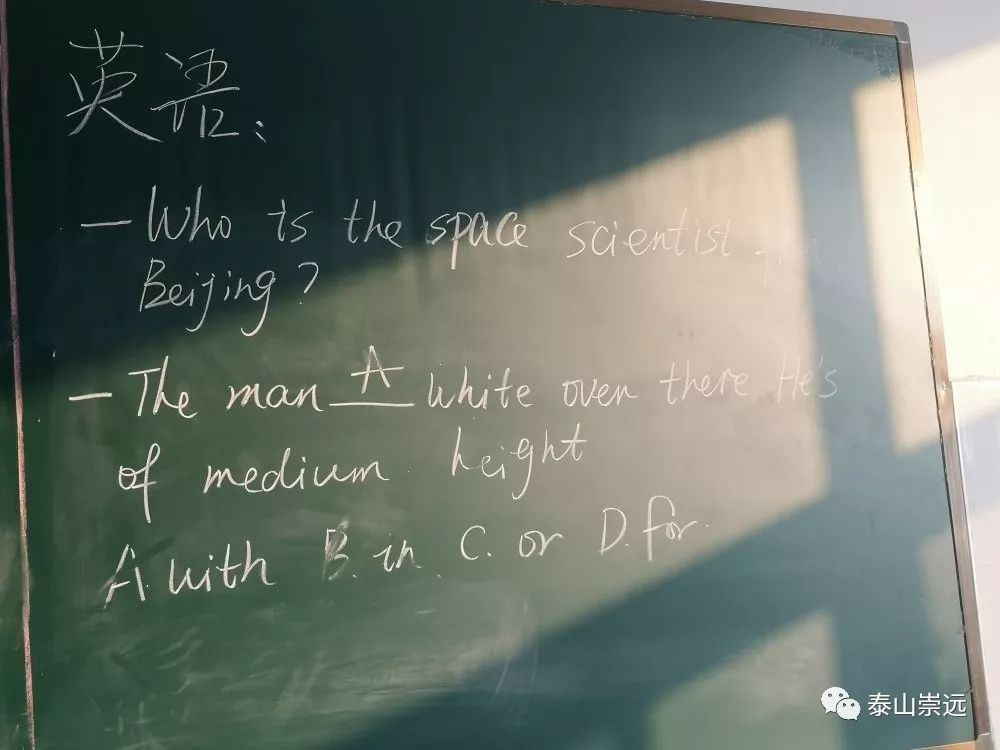 英语：
— Who is the space scientist
Beijing?
— The man A white over there He's
of medium height
A. with B. in C. or D. for
泰山崇远